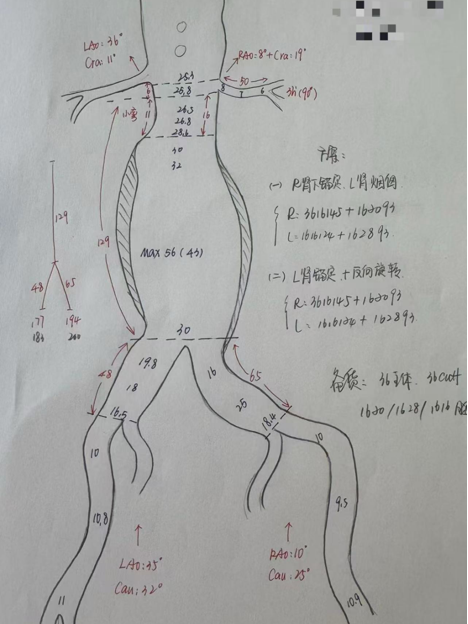 LAO: 36°
Cra: 11°
RAO=8°+Cra=19°
25.3
25.8
50
8 7 6
3H(90°)
小弯
11
16
26.3
26.8
28.6
30
32
129
129
48 65
177 194
MAX 56 (43)
方案:
(一) R肾下锚定, L肾烟囱
R: 3616145+162093
L: 1616124+162893
(二) L肾锚定+反向旋转
R: 3616145+162093
L: 1616124+162893
备货: 36主体. 36cuff
1620/1628/1616
30
48
65
19.8
18
16.5
16
25
18.4
10
10.8
11
10
9.5
10.9
LAO: 35°
Cau: 32°
RAO: 10°
Cau: 25°